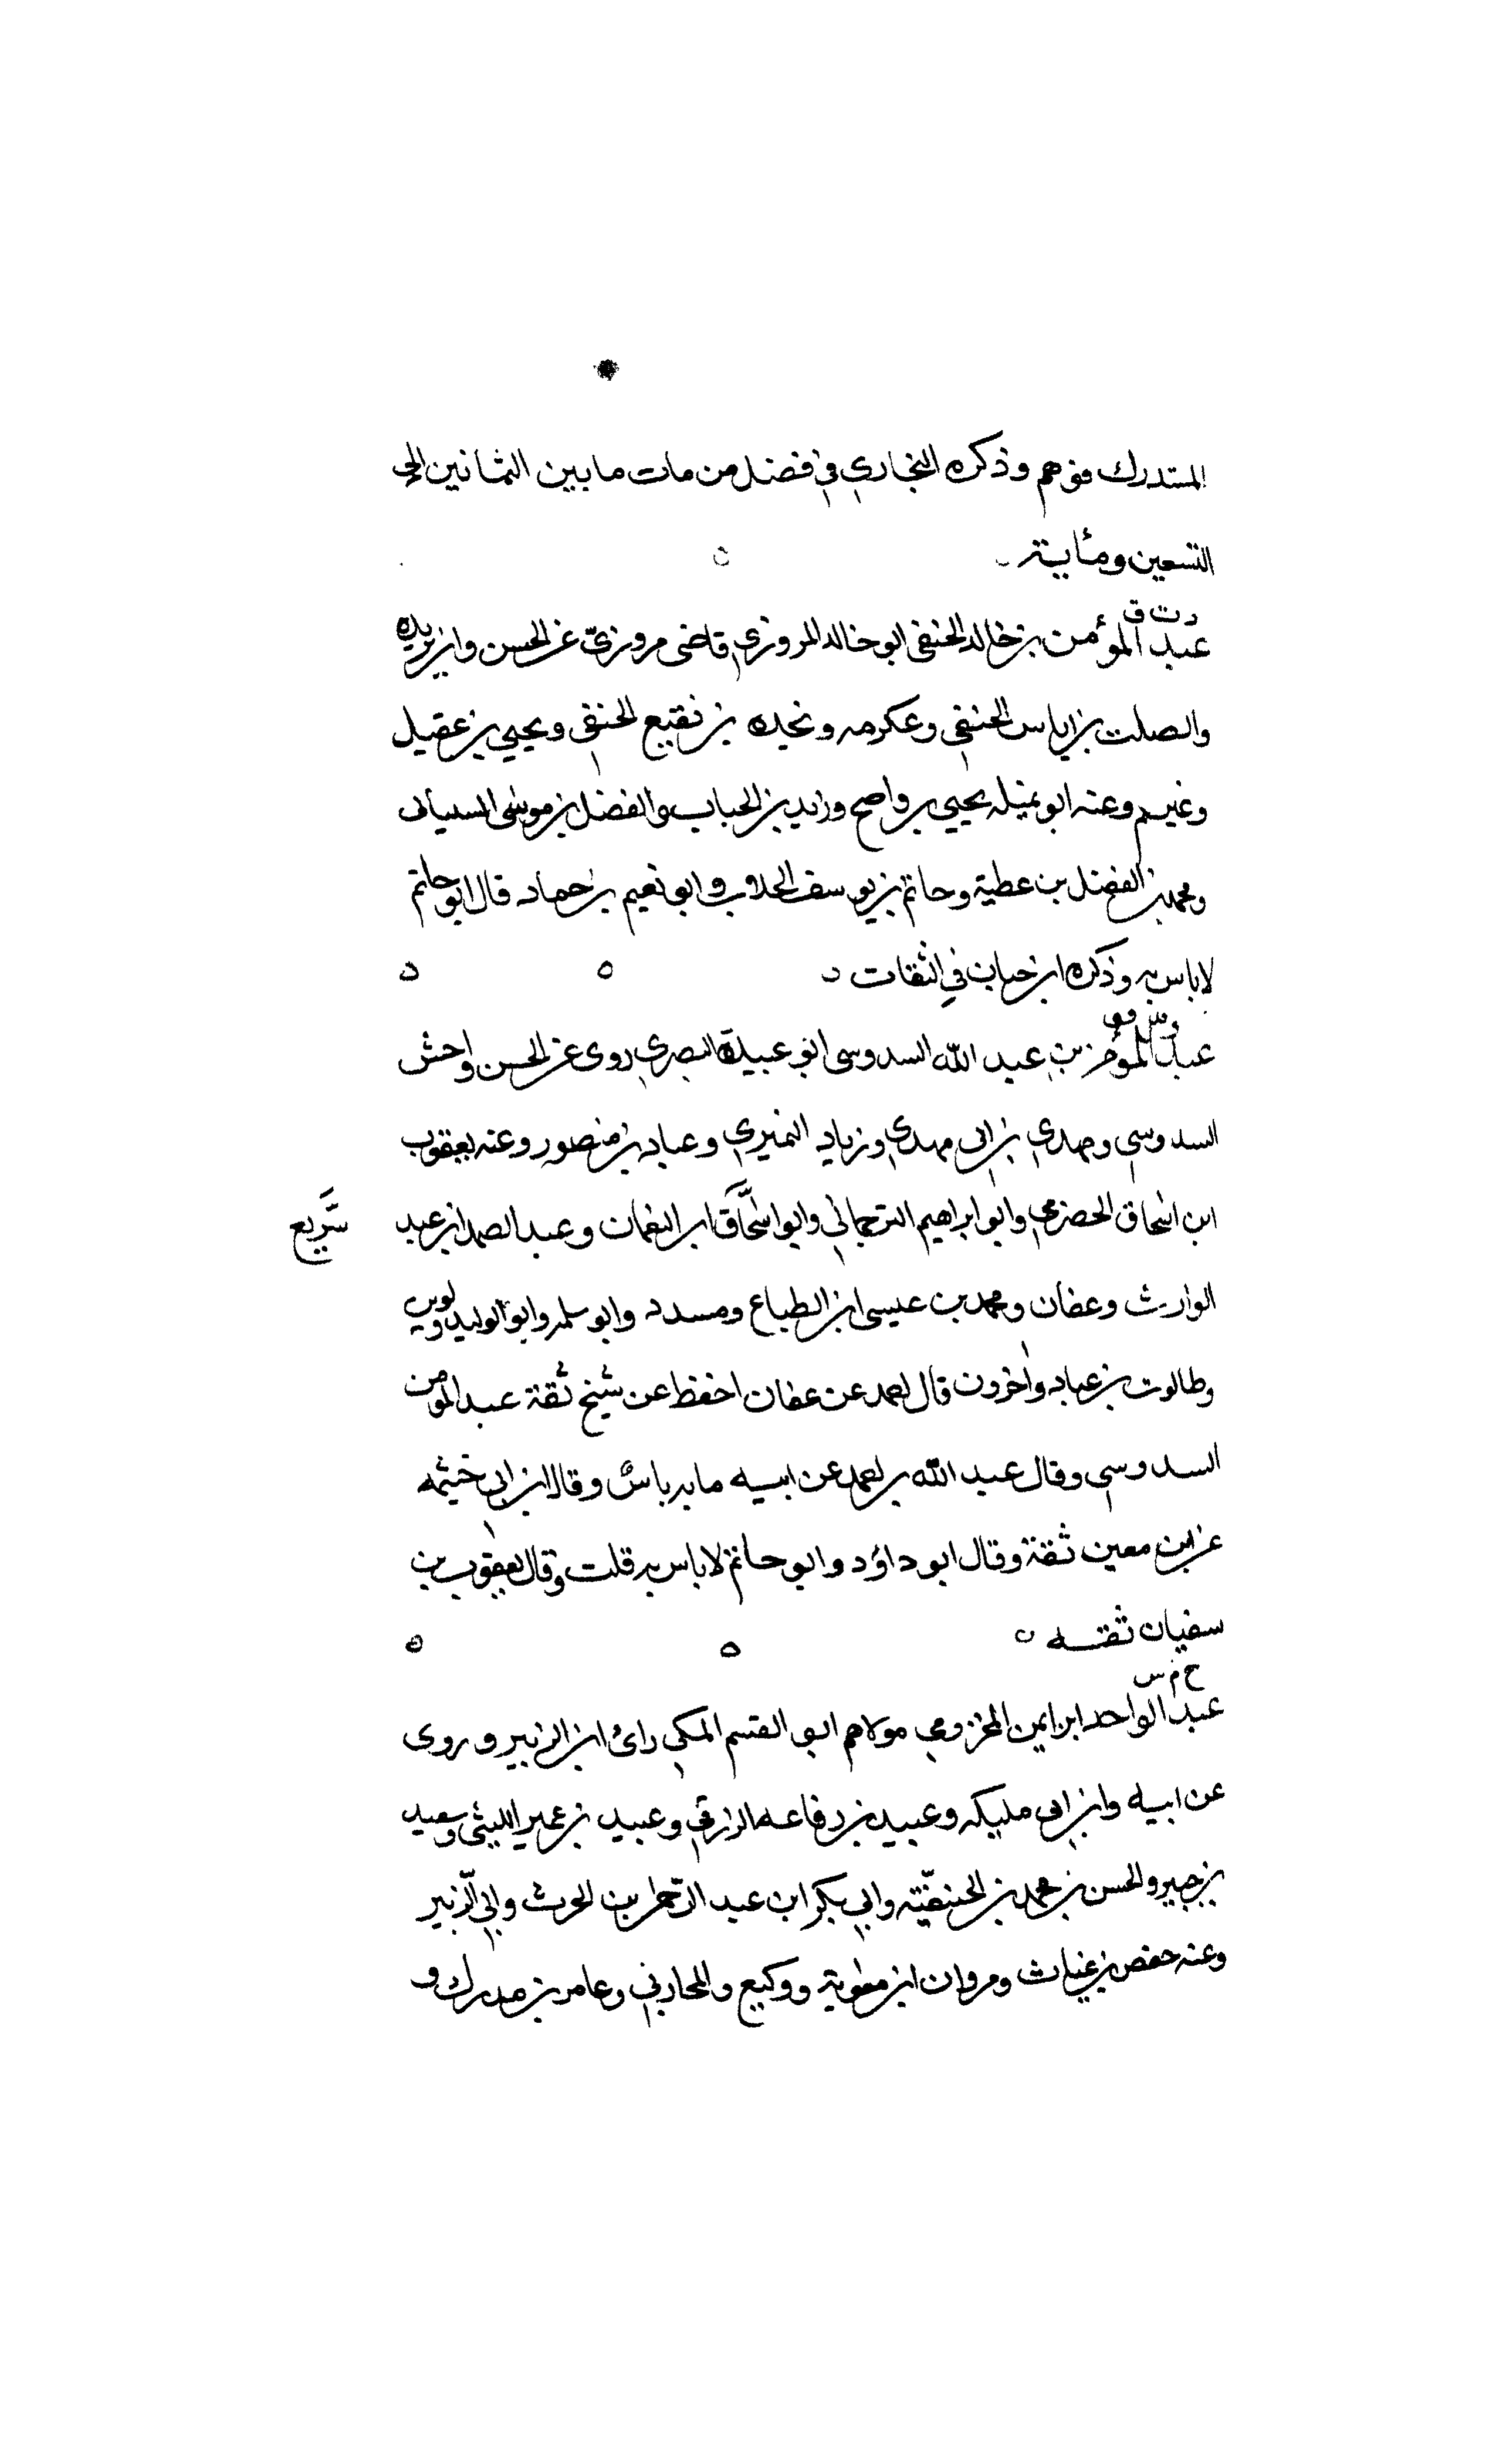 المستدرك فوهم وذكره البخاري في فضل من مات ما بين الثمانين الى
التسعين ومأية
د ت ق
عبد المؤمن بن خالد الحنفى ابو خالد المروزي قاضى مرو زىّ عن الحسن وابن بريده
والصلت بن اياس الحنفي وعكرمه ونجده بن نقيع الحنفى ويحيي بن عقيل
وغيرهم وعنه ابو تميله يحيي بن واضح وزيد بن الحباب والفضل بن موسى السينانى
ومحمد بن الفضل بن عطية وحاتم بن يوسف الجلاب وابو نعيم بن حماد قال ابو حاتم
لا باس به وذكره ابن حبان في الثقات
عبد المؤمن بن عبد الله السدوسى ابو عبيدة البصري روى عن الحسن واخش
السدوسي ومهدي بن ابى مهدي وزياد النميري وعباد بن منصور وعنه يعقوب
ابن اسحاق الحضرمي وابو ابراهيم الترجماني وابو اسحاق ابن النعمان وعبد الصمد ابن عبد
سَريع
الوارث وعفان ومحمد بن عيسى ابن الطباع ومسدد وابو سلمه وابو الوليد ولوين
وطالوت بن عباد واخرون قال احمد عن عفان احفظ عن شيخ ثقة عبد المؤمن
السدوسي وقال عبد الله بن احمد عن ابيه ما به باس وقال ابن ابي خيثمه
عن ابن معين ثقة وقال ابو داؤد وابو حاتم لا باس به قلت وقال يعقوب بن
سفيان ثقه
خ م س
عبد الواحد ابن ايمن المخزومي مولاهم ابو القسم المكي رائ ابن الزبير وروى
عن ابيه وابن ابى مليكه وعبيد بن رفاعه الزرقي وعبيد بن عمير الليثى وسعيد
بن جبير والحسن بن محمد بن الحنفيّته وابي بكر ابن عبد الرحمن بن الحرث وابي الزبير
وعنه حفص بن غياث ومروان ابن معوية ووكيع والمحاربي وعامر بن مدرك و